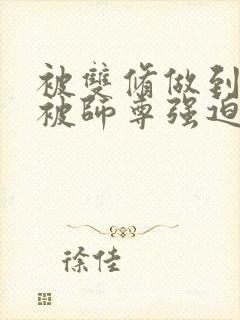 被雙脩做到
被師尊强迫
徐佳